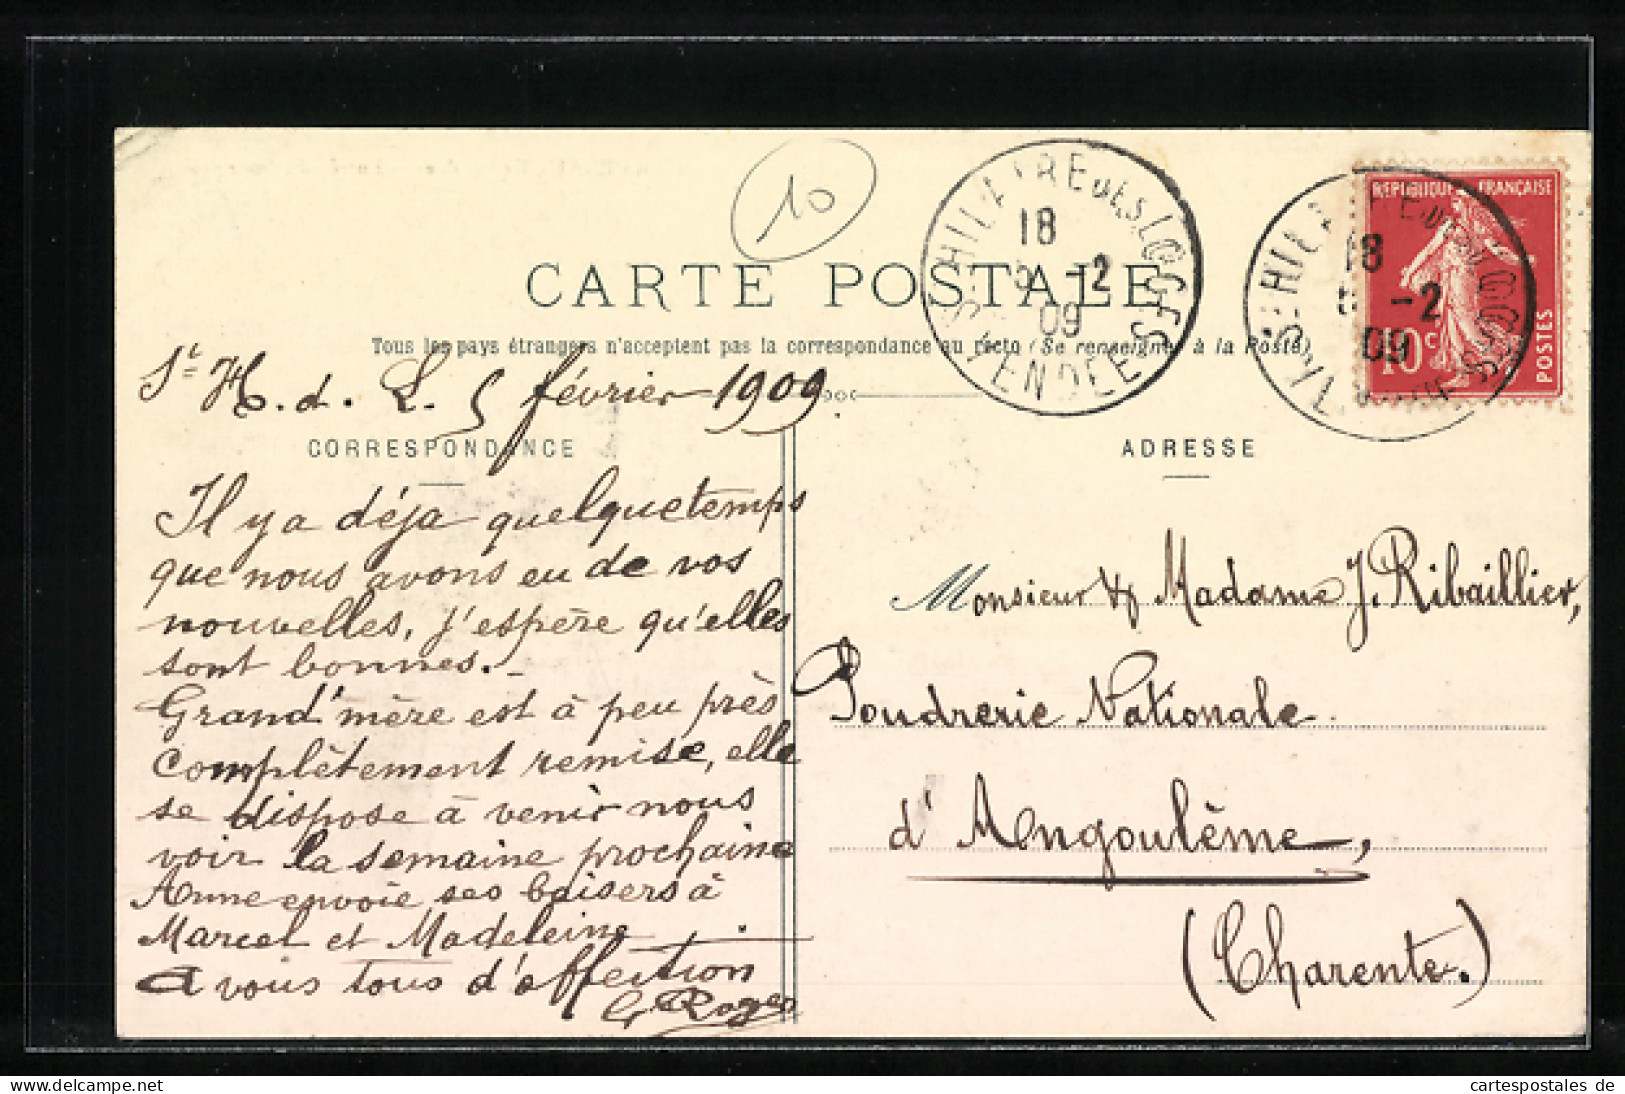 10
CARTE POSTALE
Tous les pays étrangers n'acceptent pas la correspondance au recto (Se renseigner à la Poste)
ST HILAIRE DES LOGES
18
5 -2
09
VENDEE
ST HILAIRE DES LOGES
18
5 -2
09
VENDEE
REPUBLIQUE FRANÇAISE
10c
POSTES
St H. d. L. 5 février 1909.
CORRESPONDANCE
Il y a déja quelque temps
que nous avons eu de vos
nouvelles, j'espère qu'elles
sont bonnes. -
Grand'mère est à peu près
complètement remise, elle
se dispose à venir nous
voir la semaine prochaine
Anne envoie ses baisers à
Marcel et Madeleine
A vous tous d'affection
G Roger
ADRESSE
Monsieur & Madame J. Ribaillier,
Poudrerie Nationale
d'Angoulême,
(Charente.)
cartespostales de